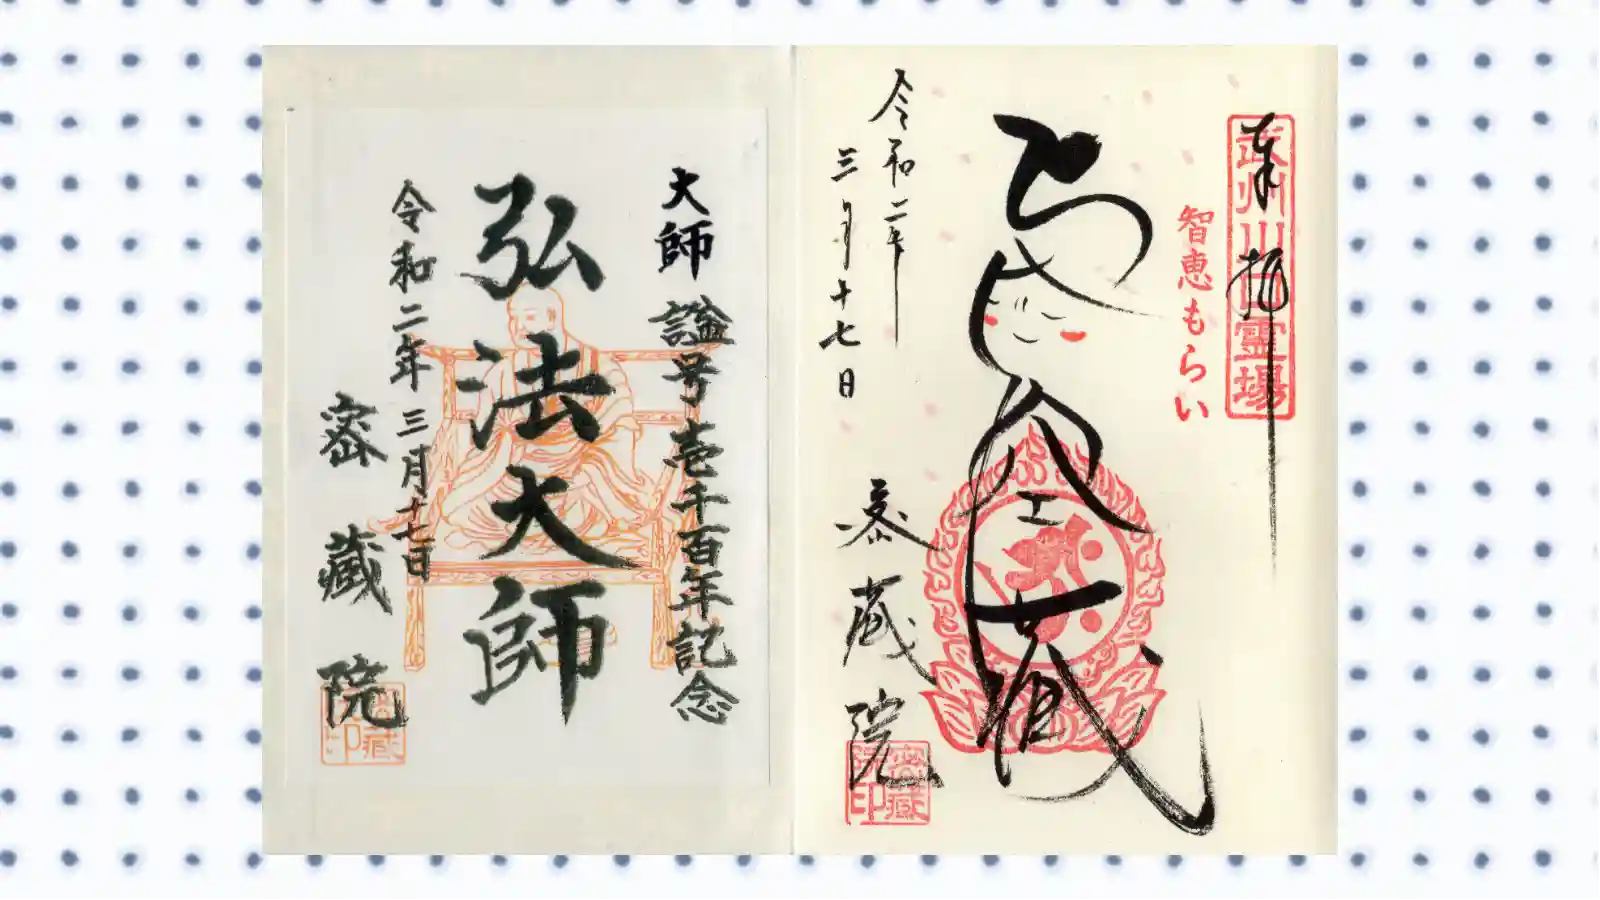 奉拝
武州川口霊場
智恵もらい
虚空蔵
令和二年
三月十七日
密蔵院
密蔵院印
大師 諡号壱千百年記念
弘法大師
令和二年三月十七日
密蔵院